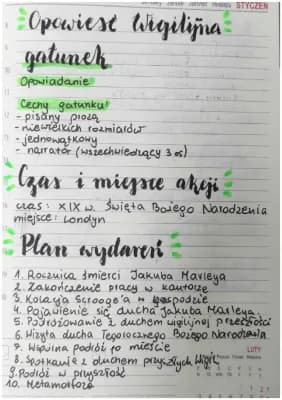 STYCZEŃ
Opowieść Wigilijna
gatunek
Opowiadanie
Cechy gatunku:
- pisany prozą
- niewielkich rozmiarów
- jednowątkowy
- narrator (wszechwiedzący 3 os)
Czas i miejsce akcji
czas: XIX w. Święta Bożego Narodzenia
miejsce: Londyn
Plan wydarzeń
1. Rocznica śmierci Jakuba Marleya
2. Zakończenie pracy w kantorze
3. Kolacja Scrooge'a w gospodzie
4. Pojawienie się ducha Jakuba Marleya
5. Podróżowanie z duchem wigilijnej przeszłości
6. Wizyta ducha Tegorocznego Bożego Narodzenia
7. Wspólna podróż po mieście
8. Spotkanie z duchem przyszłych Wigilii
9. Podróż w przyszłość
10. Metamorfoza
LUTY